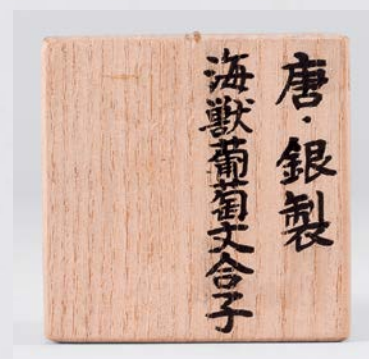 唐・銀製
海獣葡萄文合子